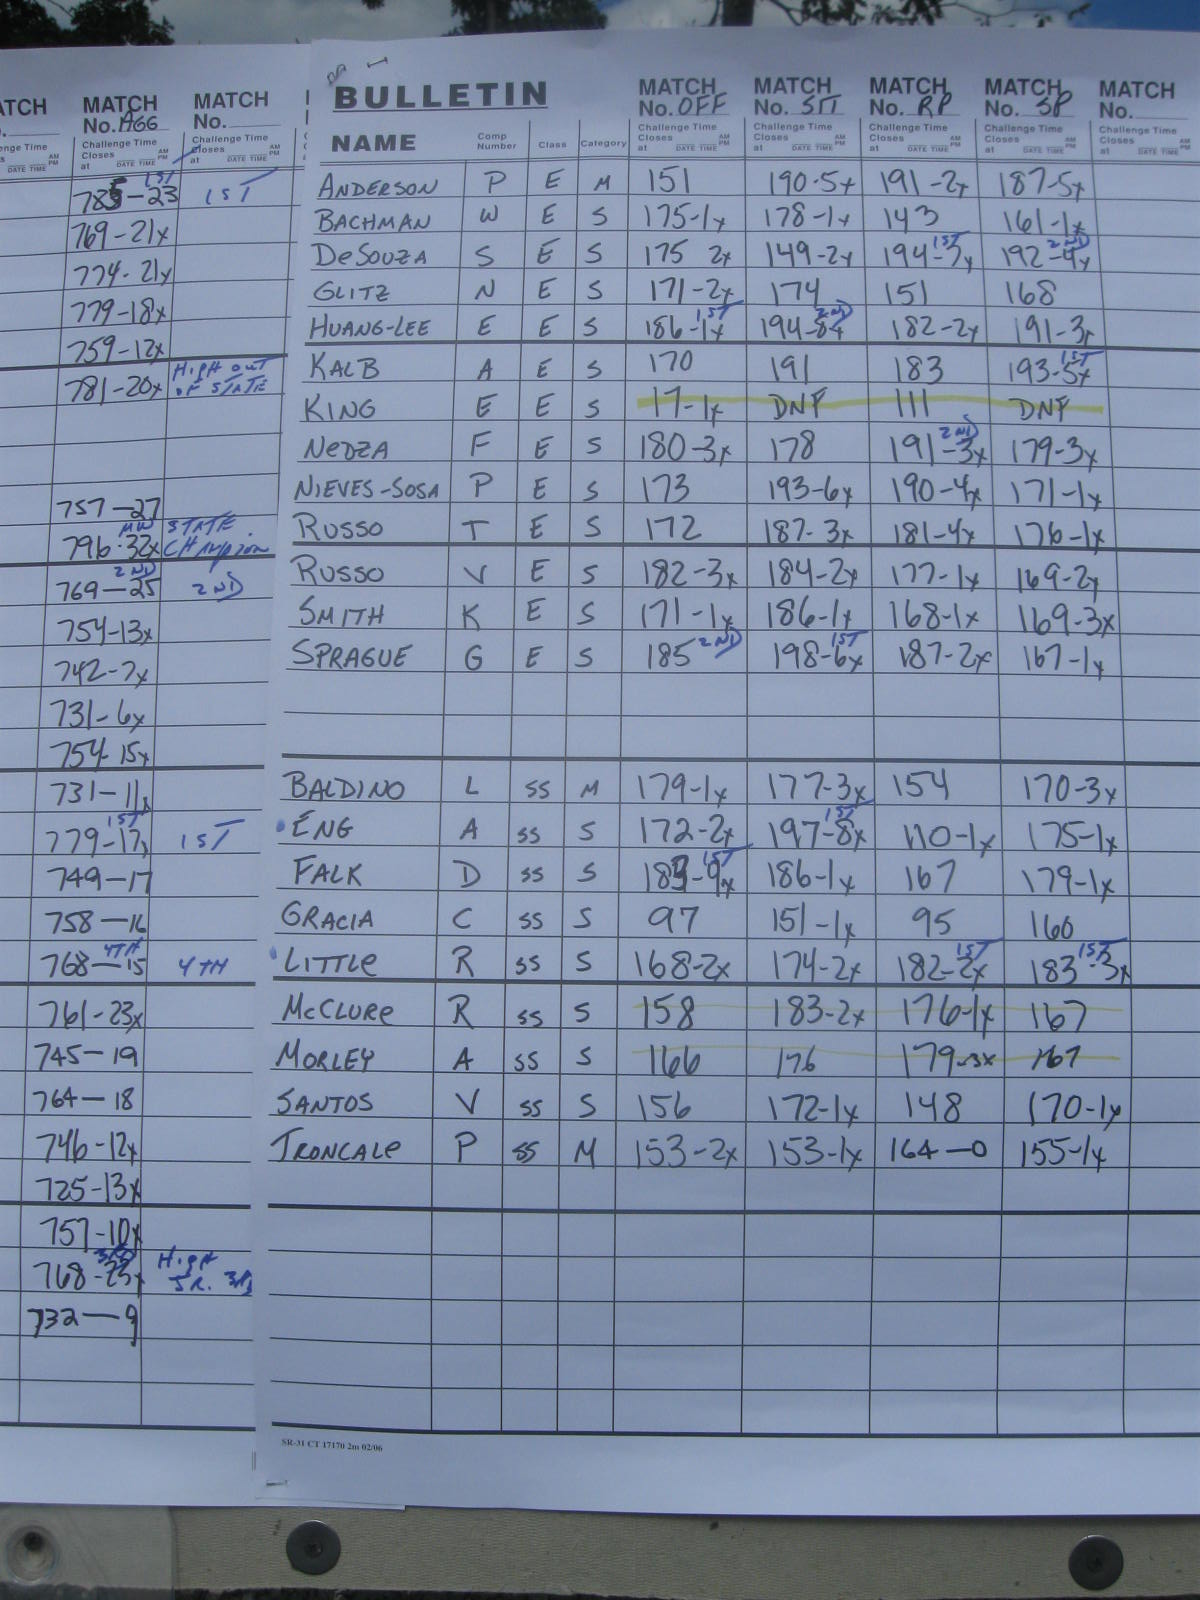 ATCH MATCH MATCH
No. No. AGG No.
Challenge Time Closes at AM PM DATE TIME
785-23 1ST 1ST
769-21x
774-21x
779-18x
759-12x
781-20x HIGH OUT OF STATE
757-27
796-32x MW STATE CHAMPION
769-25 2ND 2ND
754-13x
742-7x
731-6x
754-15x
731-11x
779-17x 1ST 1ST
749-17
758-16
768-15 4TH 4TH
761-23x
745-19
764-18
746-12x
725-13x
757-10x
768-23x 3RD HIGH SR. 3RD
732-9
BULLETIN MATCH No. OFF MATCH No. SIT MATCH No. RP MATCH No. SP MATCH No.
NAME Comp Number Class Category Challenge Time Closes at AM PM DATE TIME Challenge Time Closes at AM PM DATE TIME Challenge Time Closes at AM PM DATE TIME Challenge Time Closes at AM PM DATE TIME Challenge Time Closes at DATE TIME
ANDERSON P E M 151 190-5x 191-2x 187-5x
BACHMAN W E S 175-1x 178-1x 143 161-1x
DeSOUZA S E S 175 2x 149-2x 194-7x 1ST 192-4x 2ND
GLITZ N E S 171-2x 174 151 168
HUANG-LEE E E S 186-1x 1ST 194-8x 2ND 182-2x 191-3x
KALB A E S 170 191 183 193-5x 1ST
KING E E S 17-1x DNF 111 DNF
NEDZA F E S 180-3x 178 191-3x 2ND 179-3x
NIEVES-SOSA P E S 173 193-6x 190-4x 171-1x
RUSSO T E S 172 187-3x 181-4x 176-1x
RUSSO V E S 182-3x 184-2x 177-1x 169-2x
SMITH K E S 171-1x 186-1x 168-1x 169-3x
SPRAGUE G E S 185 2ND 198-6x 1ST 187-2x 167-1x
BALDINO L SS M 179-1x 177-3x 154 170-3x
ENG A SS S 172-2x 197-8x 1ST 110-1x 175-1x
FALK D SS S 189-9x 1ST 186-1x 167 179-1x
GRACIA C SS S 97 151-1x 95 160
LITTLE R SS S 168-2x 174-2x 182-2x 1ST 183-3x 1ST
McCLURE R SS S 158 183-2x 176-1x 167
MORLEY A SS S 166 176 179-3x 167
SANTOS V SS S 156 172-1x 148 170-1x
TRONCALE P SS M 153-2x 153-1x 164-0 155-1x
SR-31 CT 17170 2m 02/06